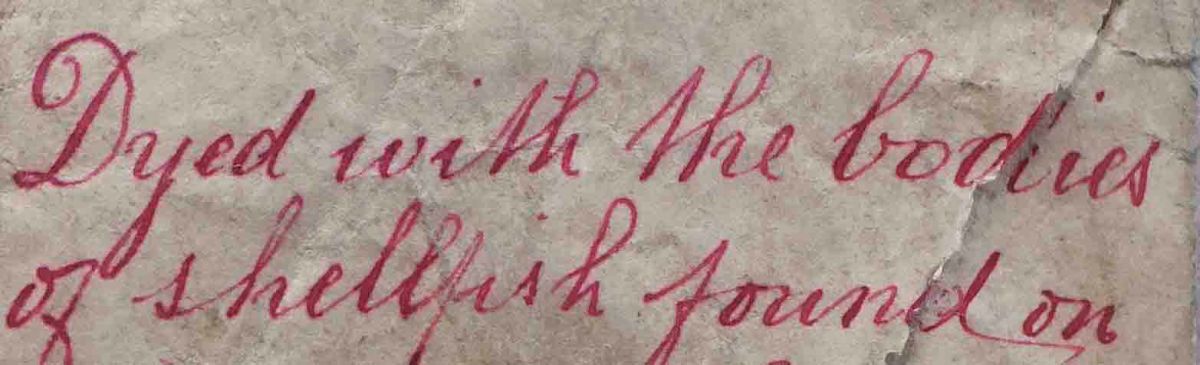 Dyed with the bodies
of shellfish found on